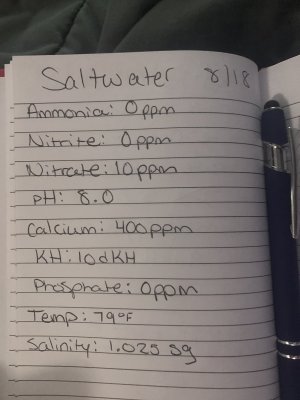 Saltwater 8/18
Ammonia: 0ppm
Nitrite: 0ppm
Nitrate: 10ppm
pH: 8.0
Calcium: 400ppm
KH: 10dKH
Phosphate: 0ppm
Temp: 79°F
Salinity: 1.025 sg